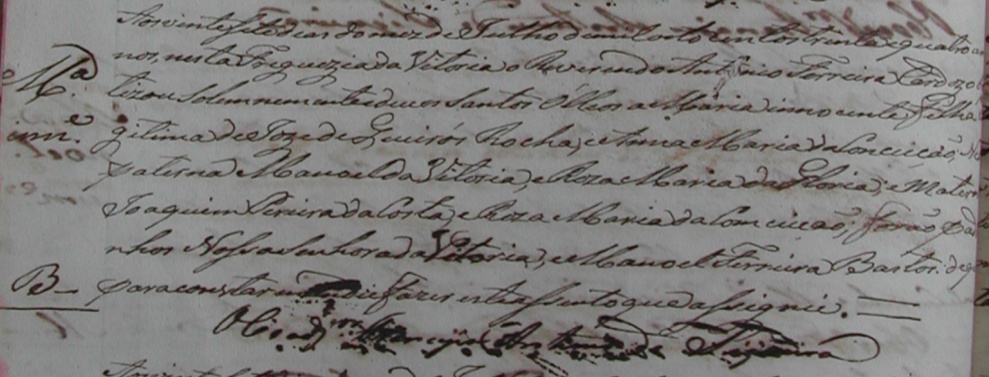 Aos vinte e sete dias do mez de Julho de mil oito centos trinta e quatro an
nos, nesta Freguezia da Vitoria o Reverendo Antônio Ferreira Cardozo
M.ª tizou solemnemente e deu os Santos Olleos a Maria innocente, filha
inn.e gitima de Joze de Queirós Rocha, e Anna Maria da Conceicaõ, N
paterna Manoel da Vitoria, e Roza Maria da Gloria, e Matern
Joaquim Pereira da Costa, e Roza Maria da Comceicaõ, foraõ pad
nhos Nossa Senhora da Vitoria, e Manoel Ferreira Bastos. de q
B para constar mandei fazer este assento que assignei.